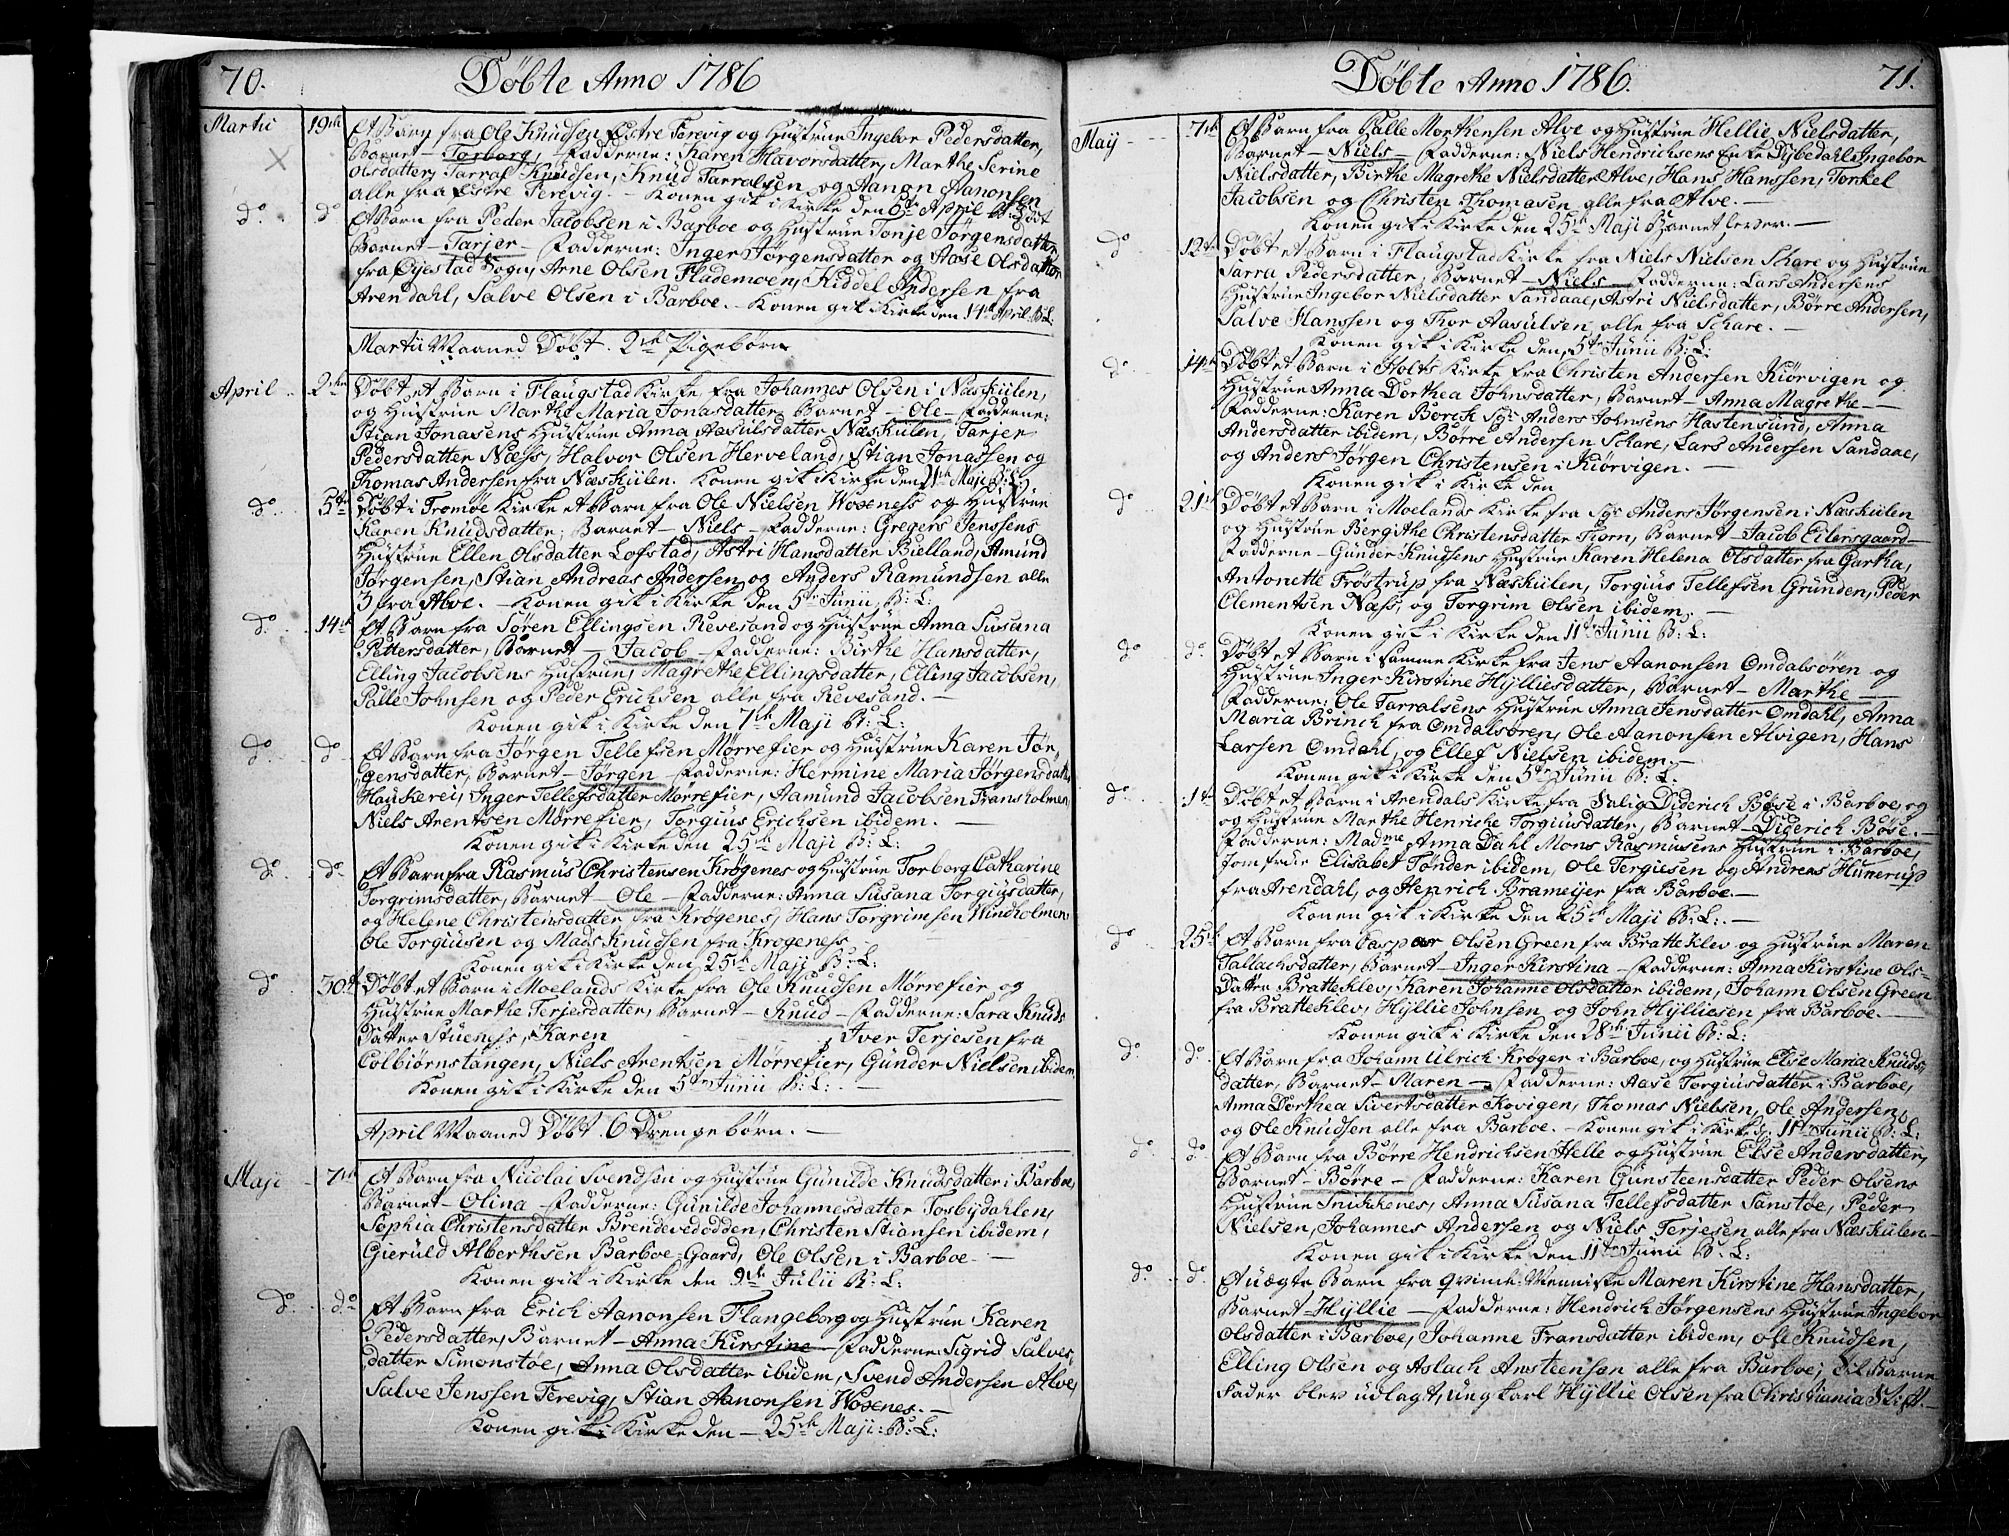 70. Døbte Anno 1786
Martii 19de Et Barn fra Ole Knudsen Østre Terevig og Hustrue Ingebor Pedersdatter,
Barnet – Torborg, – Fadderne: Karen Havorsdatter, Marthe Serine
Olsdatter, Tarral Knudsen, Knud Tarralsen og Aanon Aanonsen
alle fra Østre Terevig. – Konen gik i Kirke den 6te April
do do Et Barn fra Peder Jacobsen i Barboe og Hustrue Tonje Jørgensdatter,
Barnet – Tarjer – Fadderne: Inger Jørgensdatter og Aase Olsdatter
fra Øyestad Sogn, Arne Olsen Flademoen, Kiddel Andersen fra
Arendahl, Salve Olsen i Barboe. – Konen gik i Kirke den 14de April B: L:
Martii Maaned Døbt. 2de Pigebørn
April 2den Døbt et Barn i Flaugstad Kirke fra Johannes Olsen i Næskilen,
og Hustrue Marthe Maria Jonasdatter, Barnet – Ole – Fadderne:
Stian Jonasens Hustrue Anna Aasulsdatter Næskilen, Tarjer
Pedersdatter Næss, Halvor Olsen Herveland, Stian Jonassen og
Thomas Andersen fra Næskilen. Konen gik i Kirke den Maji B: L:
do 5te Døbt i Tromøe Kirke et Barn fra Ole Nielsen Woxeness og Hustrue
Karen Knudsdatter; Barnet – Niels – Fadderne: Gregers Jenssens
Hustrue Ellen Olsdatter Lofstad, Astri Hansdatter Bielland, Amund
Jørgensen, Stian Andreas Andersen, og Anders Ramundsen alle
3 fra Alve. – Konen gik i Kirke den 5te Junii, B: L:
do 14de Et Barn fra Søren Ellingsen Revesand og Hustrue Anna Susana
Pettersdatter, Barnet – Jacob – Fadderne: Birthe Hansdatter,
Elling Jacobsens Hustrue, Magrethe Ellingsdatter, Elling Jacobsen,
Palle Johnsen og Peder Erichsen alle fra Revesand. –
Konen gik i Kirke den 7de Maji B: L:
do do Et Barn fra Jørgen Tellefsen Mørrefier og Hustrue Karen Jør¬
gensdatter, Barnet – Jørgen – Fadderne: Hermine Maria Jørgensdatter
Haukerei, Inger Tellefsdatter Mørrefier, Aamund Jacobsen Fransholmen,
Niels Arentsen Mørrefier, Torgius Erichsen ibidem. –
Konen gik i Kirke den 25de Maji B: L:
do do Et Barn fra Rasmus Christensen Krøgenes og Hustrue Torborg Catharine
Torgrimsdatter, Barnet – Ole – Fadderne: Anna Susana Torgiusdatter,
og Helene Christensdatter fra Krøgenes, Hans Torgrimsen Windholmen
Ole Torgiusen og Mads Knudsen fra Krogeness
Konen gik i Kirke den 25de Maji B: L:
do 30te Døbt et Barn i Moelands Kirke fra Ole Knudsen Mørrefier og
Hustrue Marthe Terjesdatter, Barnet – Knud – Fadderne: Sara Knuds
Datter Stuenes, Karen , Iver Terjesen fra
Colbiørnstangen, Niels Arentsen Mørrefier, Gunder Nielsen ibidem
Konen gik i Kirke den 5te Junii B: L: –
April Maaned Døbt. 6 Drengebørn. –
Maji 7de Et Barn fra Nicolai Svendsen og Hustrue Gunilde Knudsdatter i Barboe,
Barnet – Olina – Fadderne: Gunilde Johannesdatter Tosbydahlen,
Sophia Christensdatter Brendevedodden, Christen Stiansen ibidem,
Gieruld Alberthsen Barboe-Gaard, Ole Olsen i Barboe –
Konen gik i Kirke den 9de Julii B: L:
do do Et Barn fra Erich Aanonsen Flangeborg og Hustrue Karen
Pedersdatter, Barnet – Anna Kirstine – Fadderne: Sigrid Salves
datter Simonstøe, Anna Olsdatter ibidem, Svend Andersen Alve,
Salve Jenssen Terevig, Stian Aanonsen Woxenes. –
Konen gik i Kirke den – 25de Maji: B: L:
Døbte Anno 1786. 71.
Maij 7de Et Barn fra Palle Morthensen Alve og Hustrue Hellie Nielsdatter,
Barnet – Niels – Fadderne: Niels Hendrichsens Enke Dybedahl Ingebor
Nielsdatter, Birthe Magrethe Nielsdatter Alve, Hans Hanssen, Torkel
Jacobsen og Christen Thomasen alle fra Alve. –
Konen gik i Kirke den 25de Maji Barnet lever. –
do 12te Døbt et Barn i Flaugstad Kirke fra Niels Nielsen Schare og Hustrue
Sarra Pedersdatter, Barnet – Niels – Fadderne: Lars Andersens
Hustrue Ingebor Nielsdatter Sandaae, Astri Nielsdatter, Børre Andersen,
Salve Hanssen og Thor Aasulsen, alle fra Schare. –
Konen gik i Kirke den 5te Junii B: L:
do 14de Døbt et Barn i Holts Kirke fra Christen Andersen Kiørvigen og
Hustrue Anna Dorthea Johnsdatter, Barnet – Anna Magrethe –
Fadderne: Karen Borck Sgr Anders Johnsens Hastensund, Anna
Andersdatter ibidem, Børre Andersen Schare, Lars Andersen Sandaae,
og Anders Jørgen Christensen i Kiørvigen. –
Konen gik i Kirke den
do 21de Døbt et Barn i Moelands Kirke fra Sgr Anders Jørgensen i Næskilen
og Hustrue Bergithe Christensdatter Tiorn, Barnet – Jacob Eilersgaard –
Fadderne – Gunder Knudsens Hustrue Karen Helena Olsdatter fra Gartha,
Antonette Frostrup fra Næskilen, Torgius Tellefsen Grunden, Peder
Clementsen Næss, og Torgrim Olsen ibidem. –
Konen gik i Kirke den 11te Junii B: L:
do do Døbt et Barn i samme Kirke fra Jens Aanonsen Omdalsøren og
Hustrue Inger Kirstine Hylliesdatter, Barnet – Marthe –
Fadderne: Ole Tarralsens Hustrue Anna Jensdatter Omdahl, Anna
Maria Brinck fra Omdalsøren, Ole Aanonsen Alvigen, Hans
Larsen Omdahl, og Ellef Nielsen ibidem –
Konen gik i Kirke den 5te Junii B: L:
do 1te Døbt et Barn i Arendals Kirke fra Salig Diderich Bøse i Barboe, og
og Hustrue Marthe Henricke Torgiusdatter, Barnet – Diderich Bøse. –
Fadderne: Madme Anna Dahl Mons Rasmusens Hustrue i Barboe,
Jomfrue Elisabet Tønder ibidem, Ole Tergiesen og Andreas Hunerup
fra Arendahl, og Henrich Brameijer fra Barboe –
Konen gik i Kirke den 25de Maji B: L: –
do 25de Et Barn fra Caspar Olsen Green fra Bratteklev og Hustrue Maren
Tallachsdatter, Barnet – Inger Kirstina – Fadderne: Anna Kirstine Ols-
Datter Bratteklev, Karen Johanne Olsdatter ibidem, Johann Olsen Green
fra Bratteklev, Hyllie Johnsen og John Hylliesen fra Barboe. –
Konen gik i Kirke den 28de Junii B: L:
do do Et Barn fra Johann Ulrich Krøger i Barboe, og Hustrue Else Maria Knuds,
datter, Barnet – Maren – Fadderne: Aase Torgiusdatter i Barboe,
Anna Dorthea Sivertsdatter Kovigen, Thomas Nielsen, Ole Andersen
og Ole Knudsen alle fra Barboe. – Konen gik i Kirke d. 11te Junii B: L:
do do Et Barn fra Børre Hendrichsen Helle og Hustrue Else Andersdatter,
Barnet – Børre – Fadderne: Karen Gunsteensdatter Peder Olsens
Hustrue Snikkenes, Anna Susana Tellefsdatter Sanstøe, Peder
Nielsen, Johannes Andersen og Niels Terjesen alle fra Næskilen –
Konen gik i Kirke den 11te Junii B: L:
do do Et uægte Barn fra Qvinde-Menniske Maren Kirstine Hansdatter,
Barnet – Hyllie – Fadderne: Hendrich Jørgensens Hustrue Ingebor
Olsdatter i Barboe, Johanne Fransdatter ibidem, Ole Knudsen,
Elling Olsen og Aslach Amsteensen alle fra Barboe; til Barne
Fader blev udlagt, ung karl Hyllie Olsen fra Christiania Stift. –